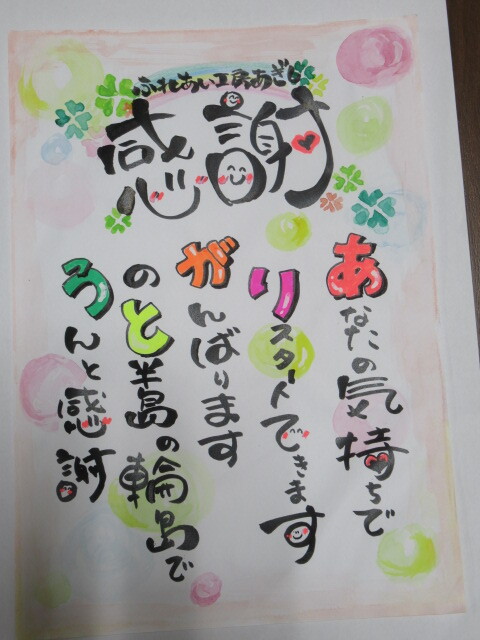 ふれあい工房あぎし
感謝
あなたの気持ちで
リスタートできます
がんばります
のと半島の輪島で
うんと感謝